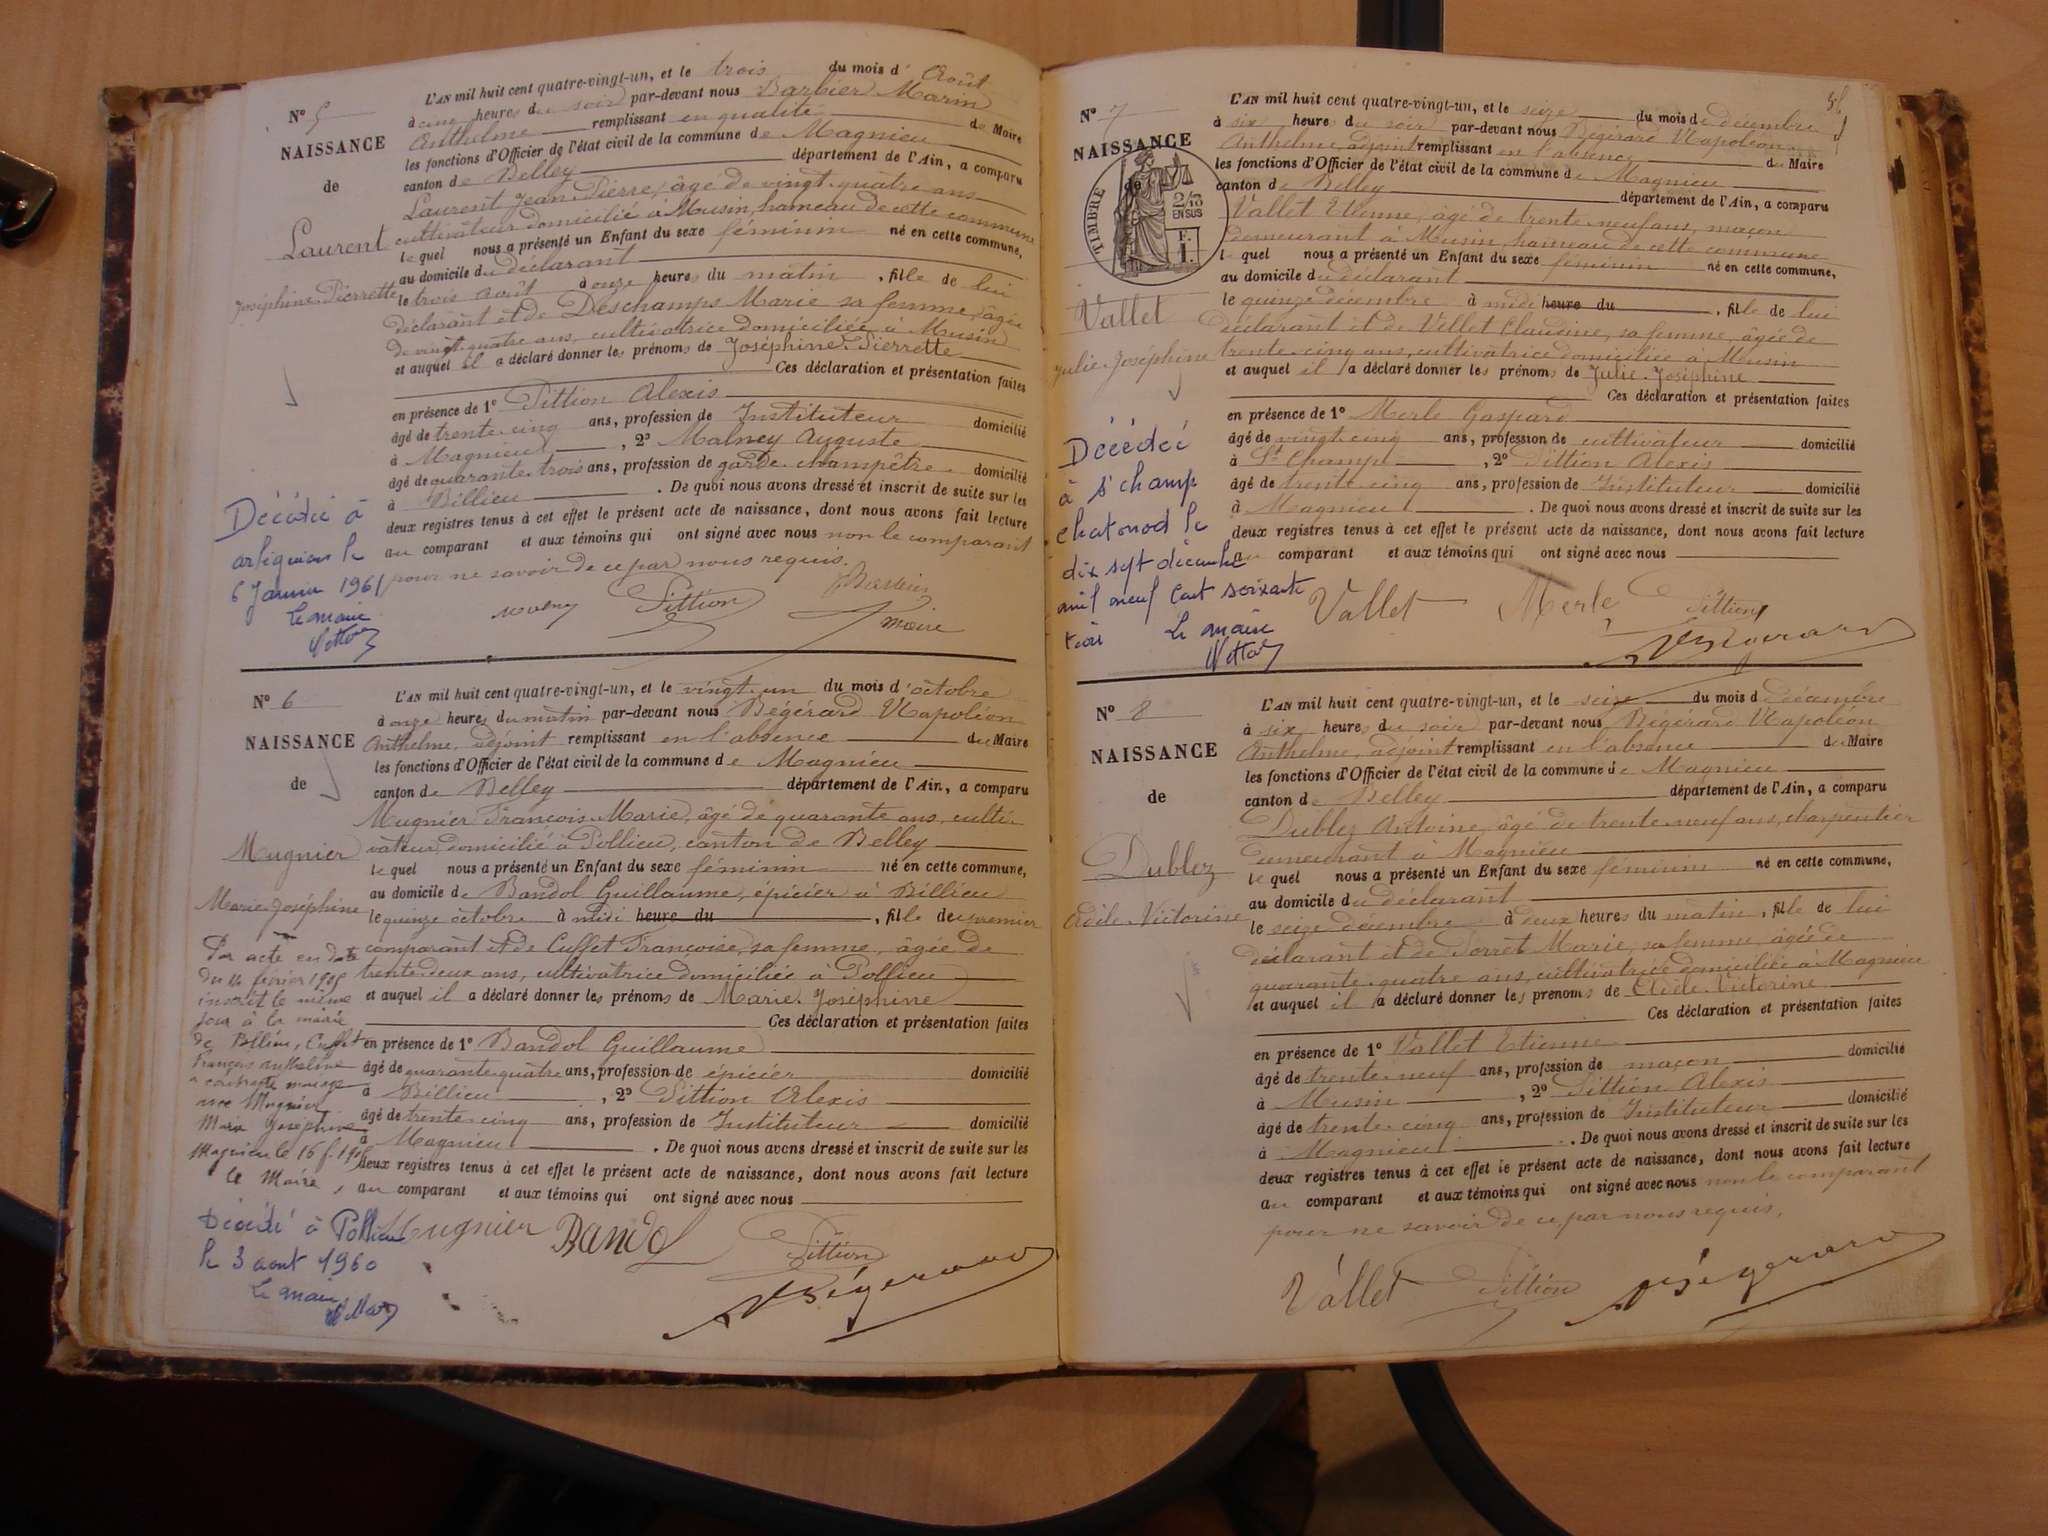 L'AN mil huit cent quatre-vingt-un, et le trois du mois d'Août
N° 5
à cinq heures du soir par-devant nous Barbier Marin
Anthelme remplissant en qualité de Maire
NAISSANCE
les fonctions d'Officier de l'état civil de la commune de Magnieu
canton de Belley département de l'Ain, a comparu
de
Laurent Jean-Pierre, âgé de vingt-quatre ans
Laurent
cultivateur domicilié à Musin, hameau de cette commune
le quel nous a présenté un Enfant du sexe féminin né en cette commune,
au domicile du déclarant
Joséphine-Pierrette
le trois Août à onze heures du matin, fille de lui
déclarant et de Deschamps Marie sa femme, âgée
de vingt-quatre ans, cultivatrice domiciliée à Musin
et auquel il a déclaré donner les prénoms de Joséphine-Pierrette
Ces déclaration et présentation faites
en présence de 1° Pittion Alexis
âgé de trente-cinq ans, profession de Instituteur domicilié
à Magnieu, 2° Malney Auguste
âgé de quarante-trois ans, profession de garde-champêtre domicilié
à Billieu. De quoi nous avons dressé et inscrit de suite sur les
deux registres tenus à cet effet le présent acte de naissance, dont nous avons fait lecture
au comparant et aux témoins qui ont signé avec nous non le comparant
pour ne savoir de ce par nous requis.
Décédée à
le
6 Janvier 1961
Le maire
Pittion
Barbier
maire
L'AN mil huit cent quatre-vingt-un, et le vingt-un du mois d'octobre
N° 6
à onze heures du matin par-devant nous Bégérard Napoléon
NAISSANCE
Anthelme, adjoint remplissant en l'absence du Maire
les fonctions d'Officier de l'état civil de la commune de Magnieu
de
canton de Belley département de l'Ain, a comparu
Mugnier François-Marie, âgé de quarante ans, culti-
Mugnier
vateur, domicilié à Pollieu, canton de Belley
le quel nous a présenté un Enfant du sexe féminin né en cette commune,
au domicile de Bandol Guillaume, épicier à Billieu
Marie-Joséphine
le quinze octobre à midi heure du, fille de premier
comparant et de Cuffet Françoise, sa femme, âgée de
trente-deux ans, cultivatrice domiciliée à Pollieu
et auquel il a déclaré donner les prénoms de Marie-Joséphine
Ces déclaration et présentation faites
en présence de 1° Bandol Guillaume
âgé de quarante-quatre ans, profession de épicier domicilié
à Billieu, 2° Pittion Alexis
âgé de trente-cinq ans, profession de Instituteur domicilié
à Magnieu. De quoi nous avons dressé et inscrit de suite sur les
deux registres tenus à cet effet le présent acte de naissance, dont nous avons fait lecture
au comparant et aux témoins qui ont signé avec nous
Par acte en date
du février
inscrit le même
jour à la mairie
de Pollieu, Cuffet
François Anthelme
a contracté mariage
avec Mugnier
Marie Joséphine
Magnieu le 16
Le Maire,
Décédé à Pollieu
le 3 août 1960
Le maire
Mugnier Bandol Pittion
Bégérard
L'AN mil huit cent quatre-vingt-un, et le seize du mois de décembre
N° 7
à six heures du soir par-devant nous Bégérard Napoléon
NAISSANCE
Anthelme, adjoint remplissant en l'absence du Maire
les fonctions d'Officier de l'état civil de la commune de Magnieu
de
canton de Belley département de l'Ain, a comparu
TIMBRE
2/10
EN SUS
F.
1.
Vallet Etienne, âgé de trente-neuf ans, maçon
demeurant à Musin, hameau de cette commune
le quel nous a présenté un Enfant du sexe féminin né en cette commune,
au domicile du déclarant
Vallet
le quinze décembre à midi heure du, fille de lui
déclarant et de Vellet Claudine, sa femme, âgée de
Julie-Joséphine
trente-cinq ans, cultivatrice domiciliée à Musin
et auquel il a déclaré donner les prénoms de Julie-Joséphine
Ces déclaration et présentation faites
en présence de 1° Merle Gaspard
âgé de vingt-cinq ans, profession de cultivateur domicilié
à St Champ, 2° Pittion Alexis
âgé de trente-cinq ans, profession de Instituteur domicilié
à Magnieu. De quoi nous avons dressé et inscrit de suite sur les
deux registres tenus à cet effet le présent acte de naissance, dont nous avons fait lecture
au comparant et aux témoins qui ont signé avec nous
Décédée
à St champ
chatonod le
dix sept décembre
mil neuf cent soixante
Le maire
Vallet Merle Pittion
Bégérard
L'AN mil huit cent quatre-vingt-un, et le seize du mois de décembre
N° 8
à six heures du soir par-devant nous Bégérard Napoléon
NAISSANCE
Anthelme, adjoint remplissant en l'absence du Maire
les fonctions d'Officier de l'état civil de la commune de Magnieu
de
canton de Belley département de l'Ain, a comparu
Dublez Antoine, âgé de trente-neuf ans, charpentier
Dublez
demeurant à Magnieu
le quel nous a présenté un Enfant du sexe féminin né en cette commune,
au domicile du déclarant
Adèle-Victorine
le seize décembre à deux heures du matin, fille de lui
déclarant et de Sorret Marie, sa femme, âgée de
quarante-quatre ans, cultivatrice domiciliée à Magnieu
et auquel il a déclaré donner les prénoms de Adèle-Victorine
Ces déclaration et présentation faites
en présence de 1° Vallet Etienne
âgé de trente-neuf ans, profession de maçon domicilié
à Musin, 2° Pittion Alexis
âgé de trente-cinq ans, profession de Instituteur domicilié
à Magnieu. De quoi nous avons dressé et inscrit de suite sur les
deux registres tenus à cet effet le présent acte de naissance, dont nous avons fait lecture
au comparant et aux témoins qui ont signé avec nous non le comparant
pour ne savoir de ce par nous requis.
Vallet Pittion Bégérard